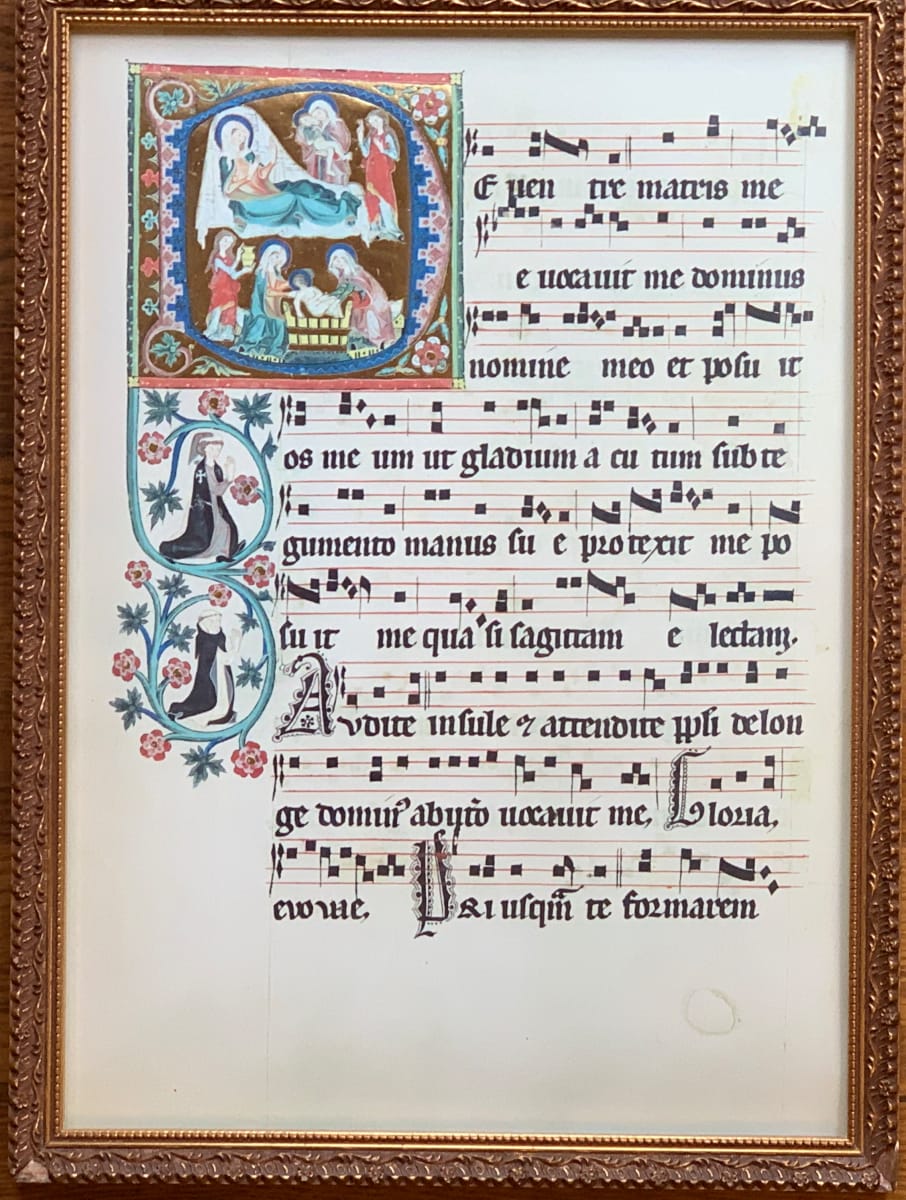 DE uen tre matris me
e uocauit me dominus
nomine meo et posu it
os me um ut gladium a cu tum sub te
gumento manus su e protexit me po
su it me qua si sagittam e lectam.
Avdite insule ⁊ attendite ppl̃i de lon
ge dominꝰ ab ut̃o uocauit me, Gloria,
evovae, PRi usqm̃ te formarem